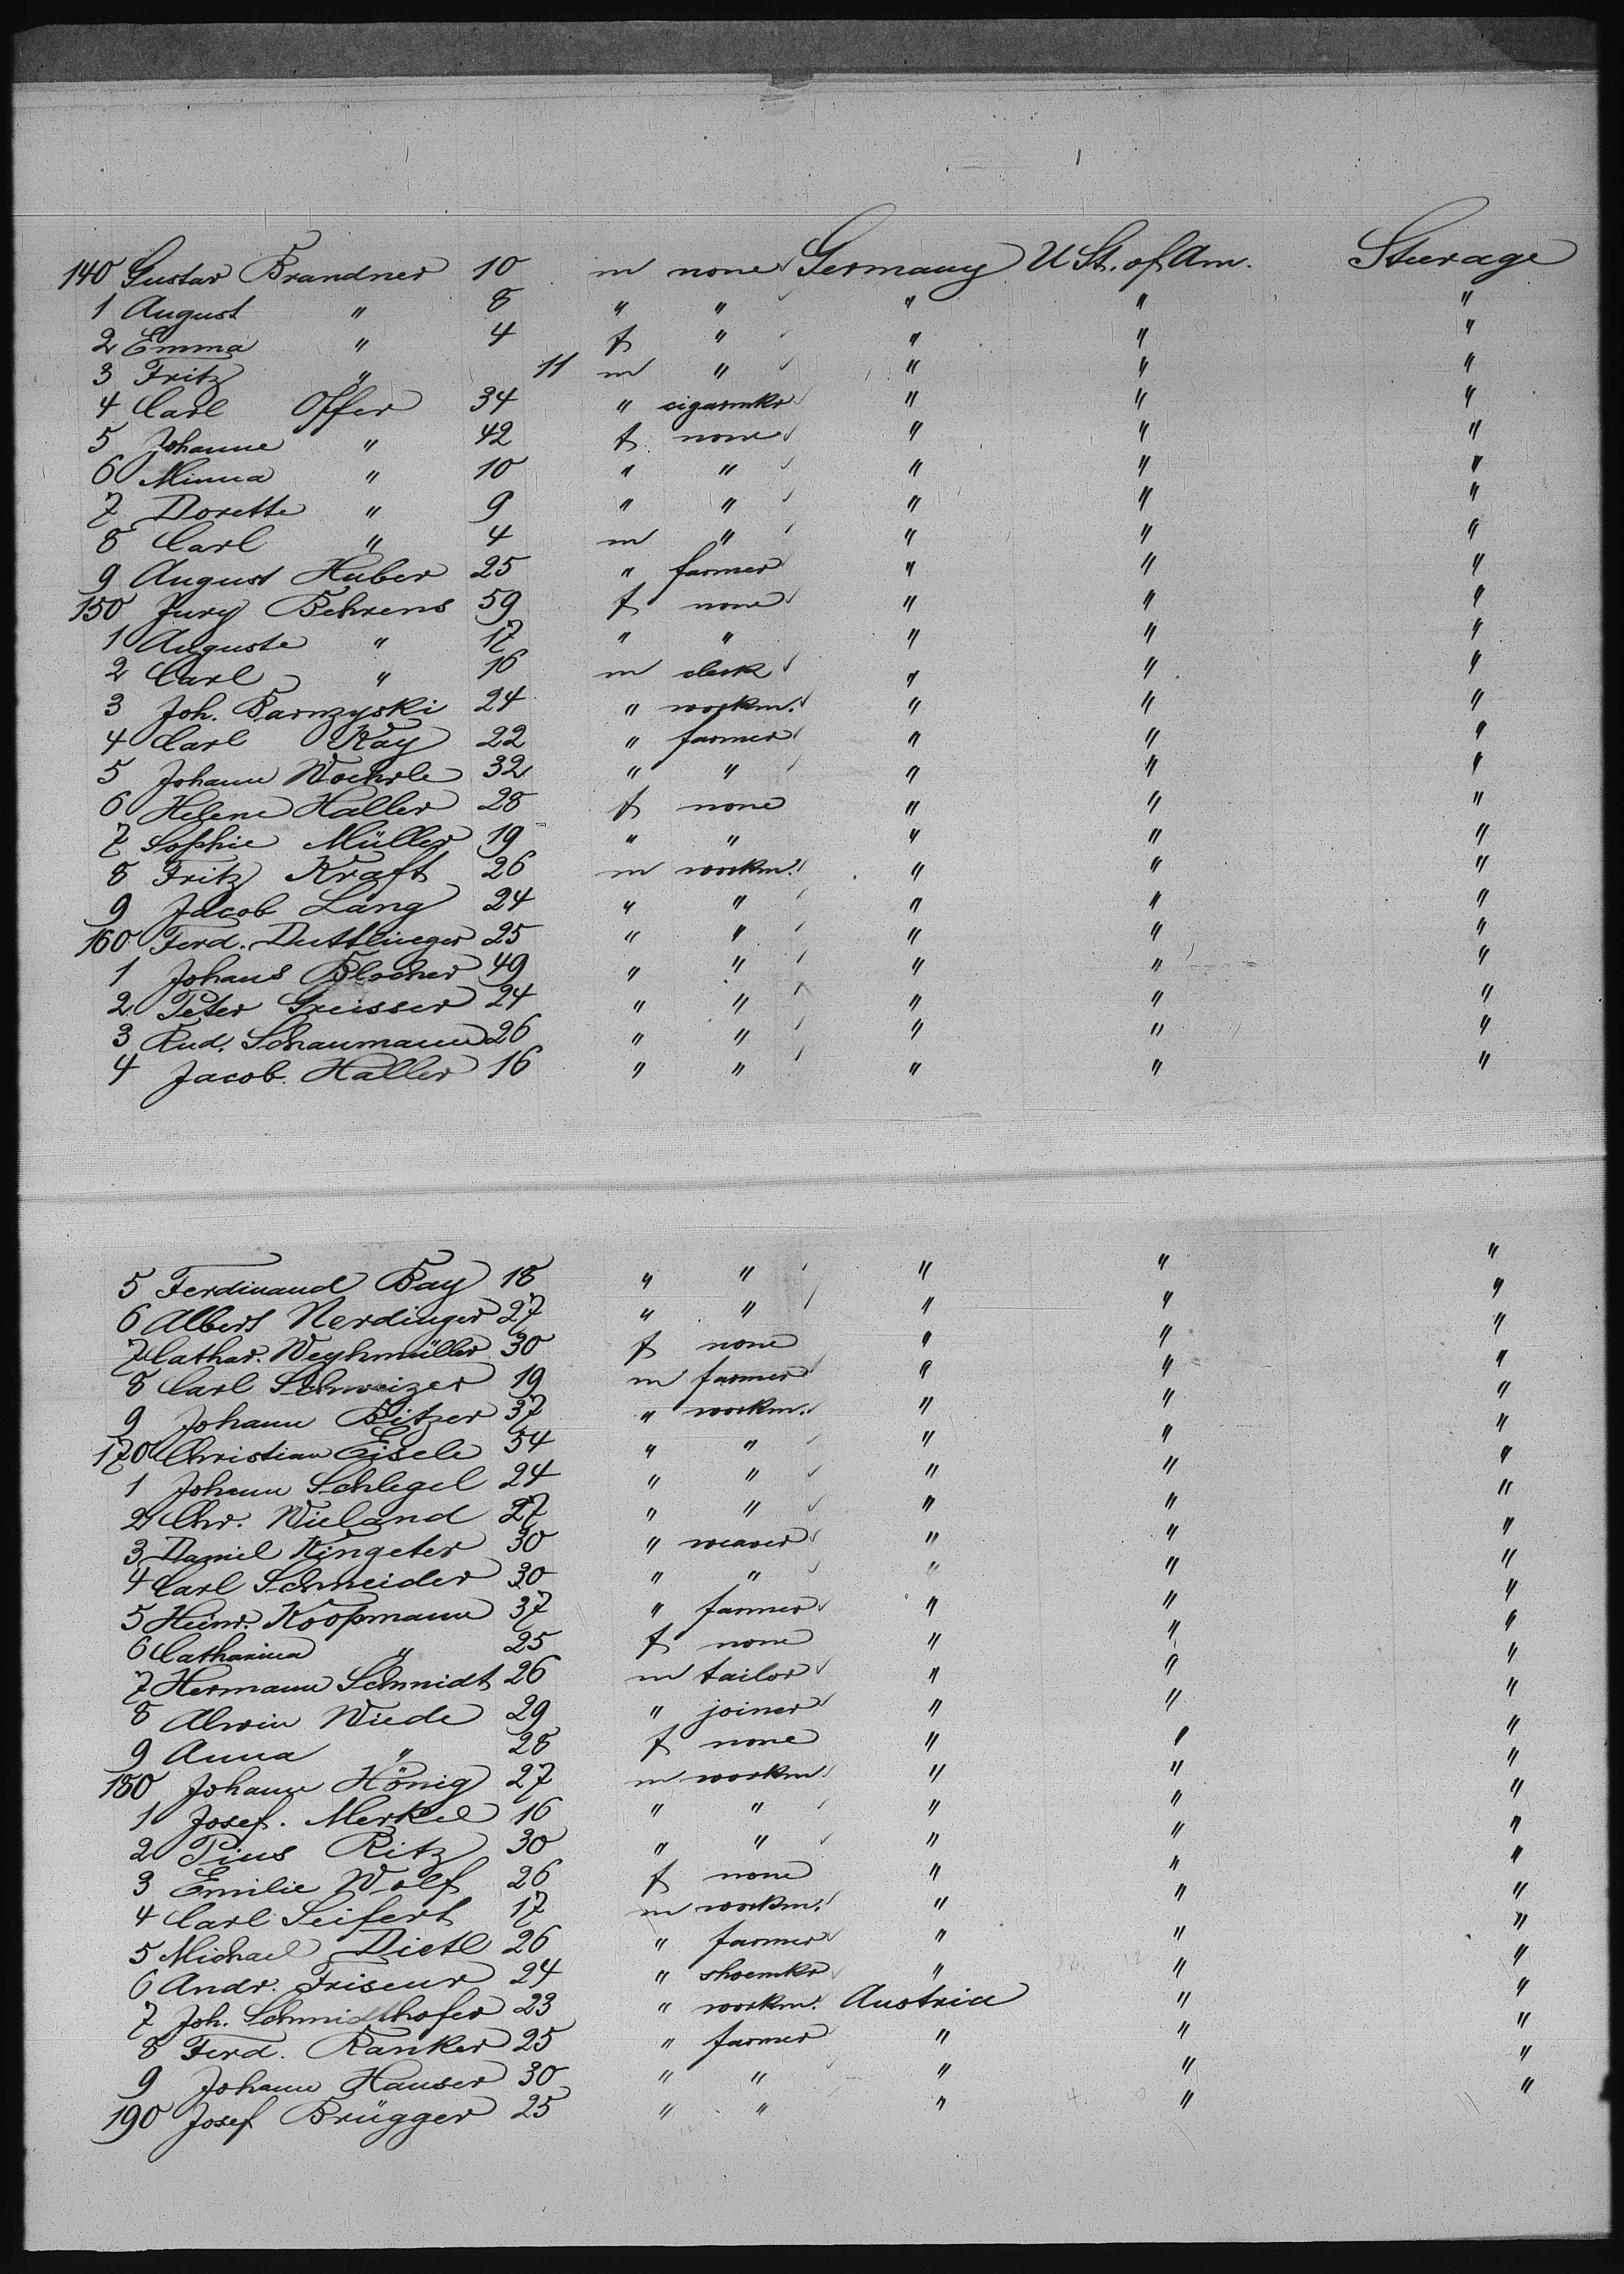 140 Gustav Brandner 10 m none Germany U St. of Am. Steerage
1 August " 8 " " " " "
2 Emma " 4 f " " " "
3 Fritz " 11 m " " " "
4 Carl Offer 34 " cigarmkr " " "
5 Johanne " 42 f none " " "
6 Minna " 10 " " " " "
7 Dorette " 9 " " " " "
8 Carl " 4 m " " " "
9 August Huber 25 " farmer " " "
150 Jury Behrens 59 f none " " "
1 Auguste " 17 " " " " "
2 Carl " 16 m clerk " " "
3 Joh. Barnzyski 24 " workm. " " "
4 Carl Kay 22 " farmer " " "
5 Johann Woehrle 32 " " " " "
6 Helene Haller 28 f none " " "
7 Sophie Müller 19 " " " " "
8 Fritz Kraft 26 m workm. " " "
9 Jacob Lang 24 " " " " "
160 Ferd. Duttlinger 25 " " " " "
1 Johans Blocher 49 " " " " "
2 Peter Greisser 24 " " " " "
3 Rud. Schaumann 26 " " " " "
4 Jacob Haller 16 " " " " "
5 Ferdinand Bay 18 " " " " "
6 Albert Nerdinger 27 " " " " "
7 Cathar. Weyhmüller 30 f none " " "
8 Carl Schweizer 19 m farmer " " "
9 Johann Bitzer 37 " workm. " " "
170 Christian Eisele 54 " " " " "
1 Johann Schlegel 24 " " " " "
2 Chr. Wieland 27 " " " " "
3 Daniel Ringeter 30 " weaver " " "
4 Carl Schneider 30 " " " " "
5 Heinr. Koopmann 37 " farmer " " "
6 Catharina " 25 f none " " "
7 Hermann Schmidt 26 m tailor " " "
8 Alwin Wiede 29 " joiner " " "
9 Anna " 28 f none " " "
180 Johann Hönig 27 m workm " " "
1 Josef. Merkel 16 " " " " "
2 Pius Ritz 30 " " " " "
3 Emilie Wolf 26 f none " " "
4 Carl Seifert 17 m workm. " " "
5 Michael Dietl 26 " farmer " " "
6 Andr. Friseur 24 " shoemkr " " "
7 Joh. Schmidthofer 23 " workm. Austria " "
8 Ferd. Ranker 25 " farmer " " "
9 Johann Hauser 30 " " " " "
190 Josef Brügger 25 " " " " "